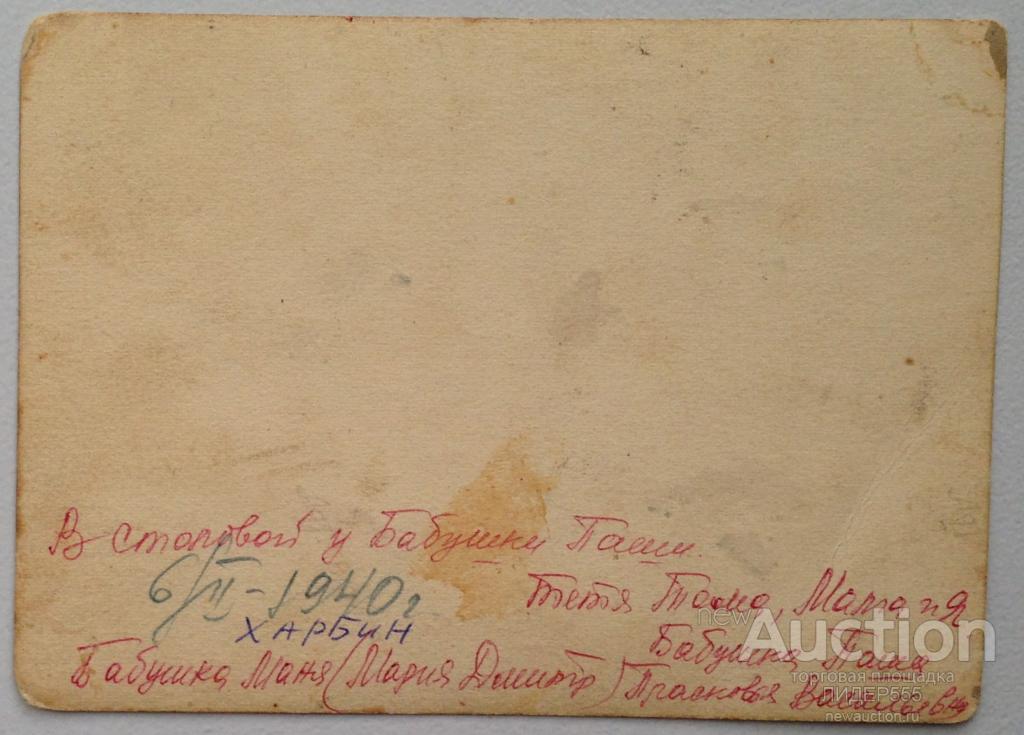 В столовой у Бабушки Паши.
6/II-1940г
ХАРБИН
тетя Тома, Мама и я
Бабушка Паша
Бабушка Маня (Мария Дмитр)
Прасковья Васильевна
newAuction
торговая площадка
ЛИДЕР555
newauction.ru